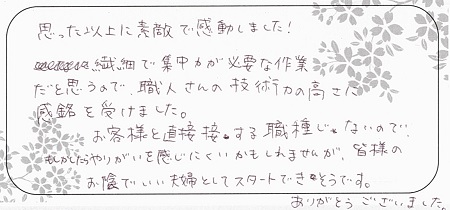 思った以上に素敵で感動しました！
繊細で集中力が必要な作業
だと思うので、職人さんの技術力の高さに
感銘を受けました。
お客様と直接接する職種じゃないので、
もしかしたらやりがいを感じにくいかもしれませんが、皆様の
お陰でいい夫婦としてスタートできそうです。
ありがとうございました。